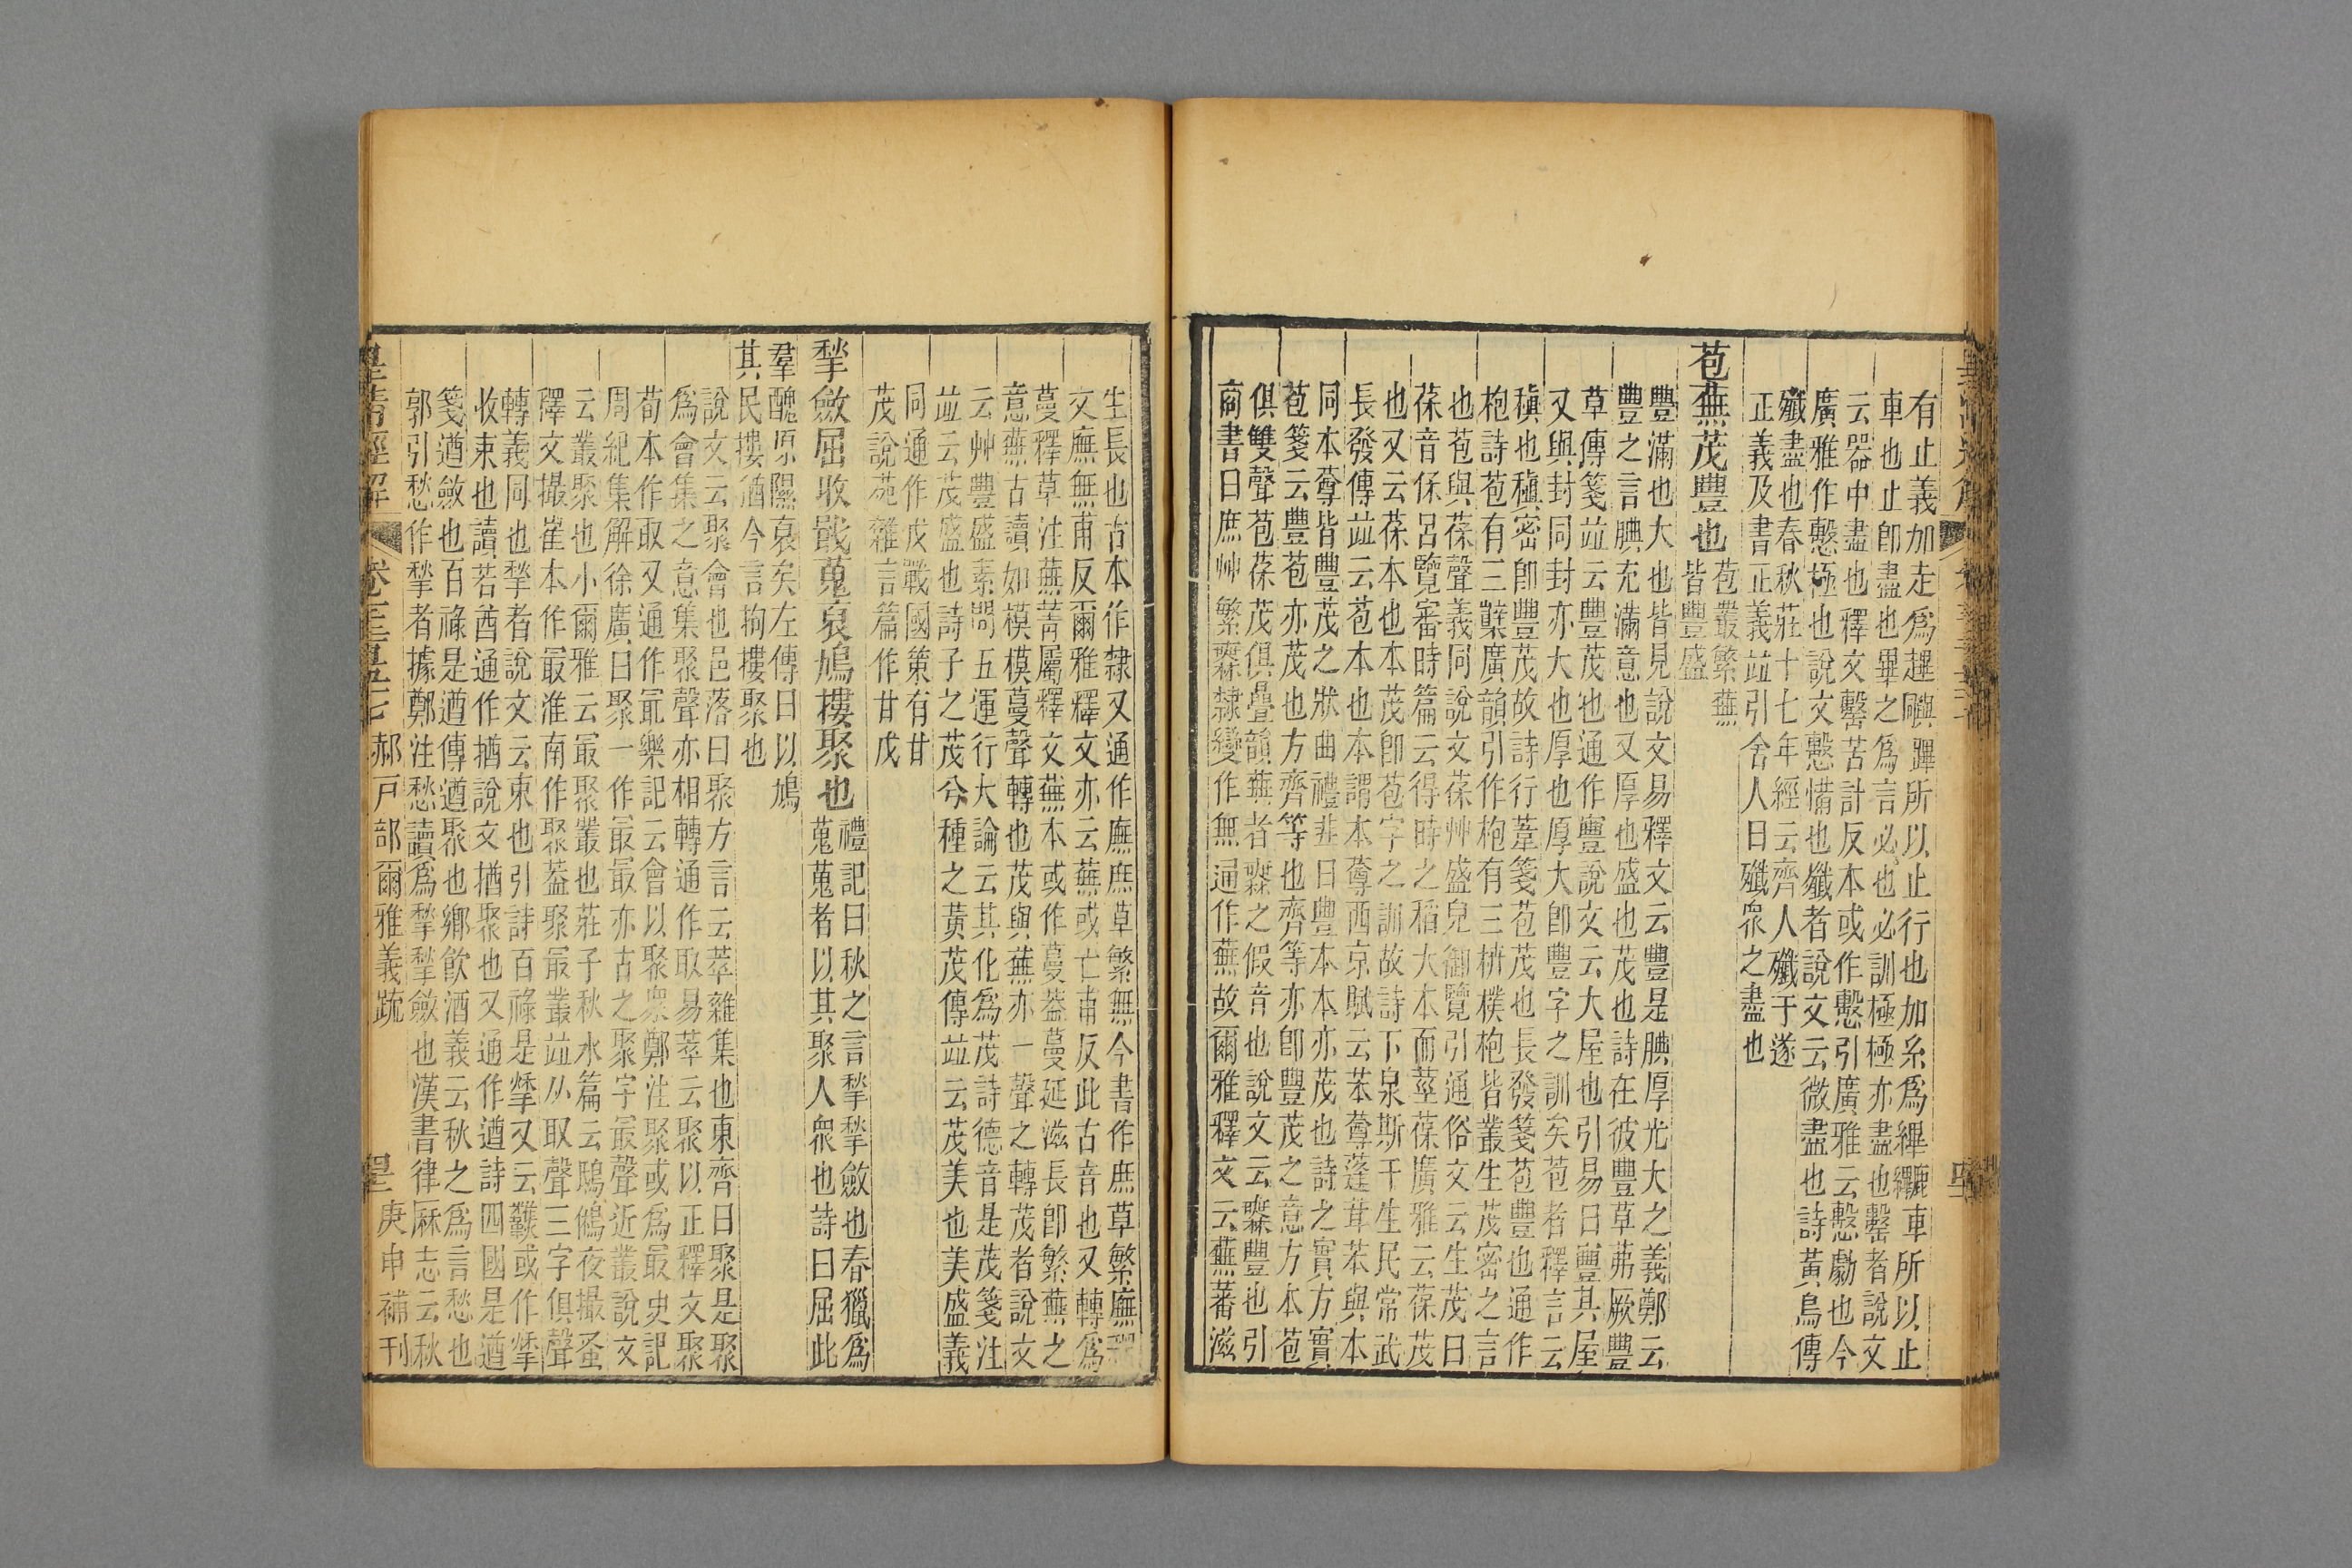 有止義加走爲趩䠞蹕所以止行也加糸爲繹䍦車所以止
車也止卽盡也畢之爲言必也必訓極極亦盡也罄者說文
云器中盡也釋文罄苦計反本或作憖引廣雅云憖勮也今
廣雅作憖極也說文憖㤥也殲者說文云微盡也詩黃鳥傳
殲盡也春秋莊十七年經云齊人殲于遂
正義及書正義竝引舍人曰殲衆之盡也
苞蕪茂豐也
苞叢繁蕪
皆豐盛
豐滿也大也皆見說文易釋文云豐是腆厚光大之義鄭云
豐之言腆充滿意也又厚也盛也茂也詩在彼豐草茀厥豐
草傳箋竝云豐茂也通作寷說文云大屋也引易曰寷其屋
又與封同封亦大也厚也厚大卽豐字之訓矣苞者釋言云
稹也稹密卽豐茂故詩行葦箋苞茂也長發箋苞豐也通作
枹詩苞有三櫱廣韻引作枹有三枿樸枹皆叢生茂密之言
也苞與葆聲義同說文葆艸盛皃御覽引通俗文云生茂曰
葆音係呂覽審時篇云得時之稻大本而莖葆廣雅云葆茂
也又云葆本也本茂卽苞字之訓故詩下泉斯干生民常武
長發傳竝云苞本也本謂本蓴西京賦云苯蓴蓬茸苯與本
同本蓴皆豐茂之狀曲禮韭曰豐本本亦茂也詩之實方實
苞箋云豐苞亦茂也方齊等也齊等亦卽豐茂之意方本苞
俱雙聲苞葆茂俱疊韻蕪者橆之假音也說文云橆豐也引
商書曰庶艸繁橆隸變作無通作蕪故爾雅釋文云蕪蕃滋
生長也古本作隸又通作廡庶草繁無今書作庶草繁廡釋
文廡無甫反爾雅釋文亦云蕪或亡甫反此古音也又轉爲
蔓釋草注蕪菁屬釋文蕪本或作蔓葢蔓延滋長卽繁蕪之
意蕪古讀如模模蔓聲轉也茂與蕪亦一聲之轉茂者說文
云艸豐盛素問五運行大論云其化爲茂詩德音是茂箋注
竝云茂盛也詩子之茂兮種之黃茂傳竝云茂美也美盛義
同通作戊戰國策有甘
茂說苑雜言篇作甘戊
揫斂屈收戢蒐裒鳩摟聚也
禮記曰秋之言揫揫斂也春獵爲
蒐蒐者以其聚人衆也詩曰屈此
羣醜原隰裒矣左傳曰以鳩
其民摟猶今言拘摟聚也
說文云聚會也邑落曰聚方言云萃雜集也東齊曰聚是聚
爲會集之意集聚聲亦相轉通作取易萃云聚以正釋文聚
荀本作取又通作冣樂記云會以聚衆鄭注聚或爲最史記
周紀集解徐廣曰聚一作最最亦古之聚字最聲近叢說文
云叢聚也小爾雅云最聚叢也莊子秋水篇云鴟鵂夜撮蚤
釋文撮崔本作最淮南作聚葢聚最叢竝从取聲三字俱聲
轉義同也揫者說文云束也引詩百祿是揫又云䪝或作揫
收束也讀若酋通作揂說文揂聚也又通作遒詩四國是遒
箋遒斂也百祿是遒傳遒聚也鄉飮酒義云秋之爲言愁也
郭引愁作揫者據鄭注愁讀爲揫揫斂也漢書律厤志云秋
皇淸經解 卷千二百五十七 郝戸部爾雅義疏 庚申補刊